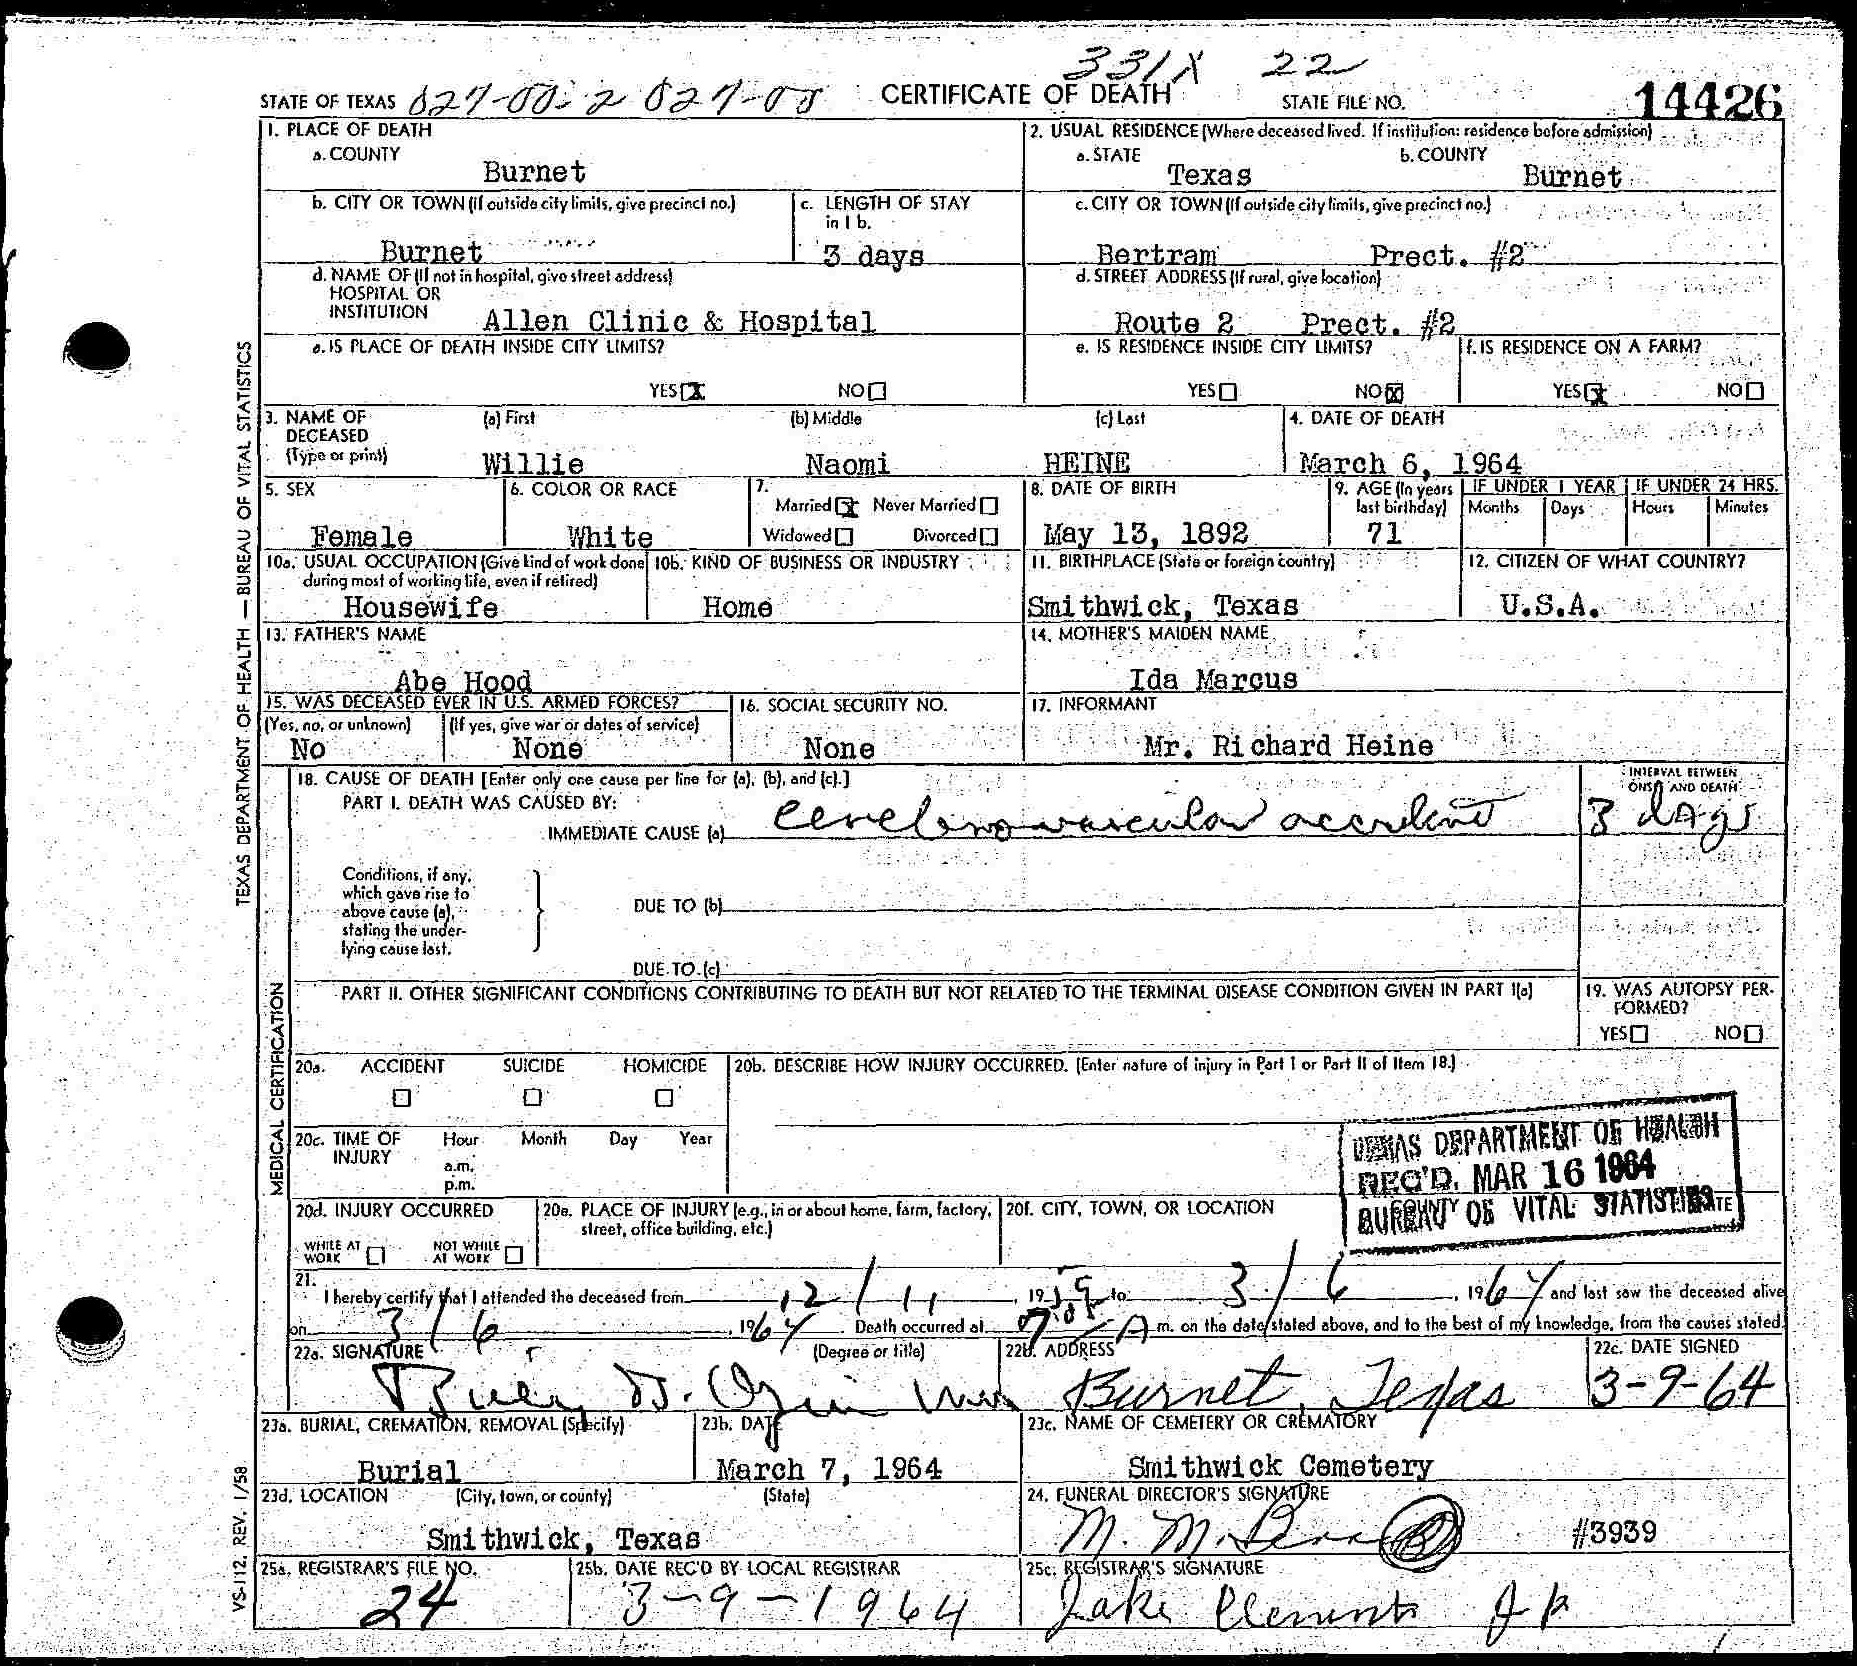 331X 22
STATE OF TEXAS 027-00-2 027-00 CERTIFICATE OF DEATH STATE FILE NO. 14426
1. PLACE OF DEATH
a. COUNTY
Burnet
2. USUAL RESIDENCE (Where deceased lived. If institution: residence before admission)
a. STATE b. COUNTY
Texas Burnet
b. CITY OR TOWN (If outside city limits, give precinct no.)
Burnet
c. LENGTH OF STAY
in 1 b.
3 days
c. CITY OR TOWN (If outside city limits, give precinct no.)
Bertram Prect. #2
d. NAME OF (If not in hospital, give street address)
HOSPITAL OR
INSTITUTION Allen Clinic & Hospital
d. STREET ADDRESS (If rural, give location)
Route 2 Prect. #2
e. IS PLACE OF DEATH INSIDE CITY LIMITS?
YES X NO
e. IS RESIDENCE INSIDE CITY LIMITS?
YES NO X
f. IS RESIDENCE ON A FARM?
YES X NO
3. NAME OF (a) First (b) Middle (c) Last
DECEASED
(Type or print) Willie Naomi HEINE
4. DATE OF DEATH
March 6, 1964
5. SEX
Female
6. COLOR OR RACE
White
7.
Married X Never Married
Widowed Divorced
8. DATE OF BIRTH
May 13, 1892
9. AGE (In years
last birthday)
71
IF UNDER 1 YEAR IF UNDER 24 HRS.
Months Days Hours Minutes
10a. USUAL OCCUPATION (Give kind of work done
during most of working life, even if retired)
Housewife
10b. KIND OF BUSINESS OR INDUSTRY
Home
11. BIRTHPLACE (State or foreign country)
Smithwick, Texas
12. CITIZEN OF WHAT COUNTRY?
U.S.A.
13. FATHER'S NAME
Abe Hood
14. MOTHER'S MAIDEN NAME
Ida Marcus
15. WAS DECEASED EVER IN U.S. ARMED FORCES?
(Yes, no, or unknown) (If yes, give war or dates of service)
No None
16. SOCIAL SECURITY NO.
None
17. INFORMANT
Mr. Richard Heine
18. CAUSE OF DEATH [Enter only one cause per line for (a), (b), and (c).]
PART I. DEATH WAS CAUSED BY:
IMMEDIATE CAUSE (a) Cerebrovascular accident
INTERVAL BETWEEN
ONSET AND DEATH
3 days
Conditions, if any,
which gave rise to
above cause (a),
stating the under-
lying cause last.
DUE TO (b)
DUE TO (c)
PART II. OTHER SIGNIFICANT CONDITIONS CONTRIBUTING TO DEATH BUT NOT RELATED TO THE TERMINAL DISEASE CONDITION GIVEN IN PART I(a)
19. WAS AUTOPSY PER-
FORMED?
YES NO
20a. ACCIDENT SUICIDE HOMICIDE
20b. DESCRIBE HOW INJURY OCCURRED. (Enter nature of injury in Part I or Part II of Item 18.)
20c. TIME OF Hour Month Day Year
INJURY
a.m.
p.m.
TEXAS DEPARTMENT OF HEALTH
REC'D. MAR 16 1964
BUREAU OF VITAL STATISTICS
20d. INJURY OCCURRED
WHILE AT
WORK
NOT WHILE
AT WORK
20e. PLACE OF INJURY (e.g., in or about home, farm, factory,
street, office building, etc.)
20f. CITY, TOWN, OR LOCATION COUNTY STATE
21.
I hereby certify that I attended the deceased from 12/11, 1959 to 3/6, 1964 and last saw the deceased alive
on 3/6, 1964 Death occurred at A m. on the date stated above, and to the best of my knowledge, from the causes stated.
22a. SIGNATURE (Degree or title)
22b. ADDRESS
Burnet, Texas
22c. DATE SIGNED
3-9-64
23a. BURIAL, CREMATION, REMOVAL (Specify)
Burial
23b. DATE
March 7, 1964
23c. NAME OF CEMETERY OR CREMATORY
Smithwick Cemetery
23d. LOCATION (City, town, or county) (State)
Smithwick, Texas
24. FUNERAL DIRECTOR'S SIGNATURE
#3939
25a. REGISTRAR'S FILE NO.
24
25b. DATE REC'D BY LOCAL REGISTRAR
3-9-1964
25c. REGISTRAR'S SIGNATURE
Jake Clements J P
TEXAS DEPARTMENT OF HEALTH — BUREAU OF VITAL STATISTICS
MEDICAL CERTIFICATION
VS-112. REV. 1/58